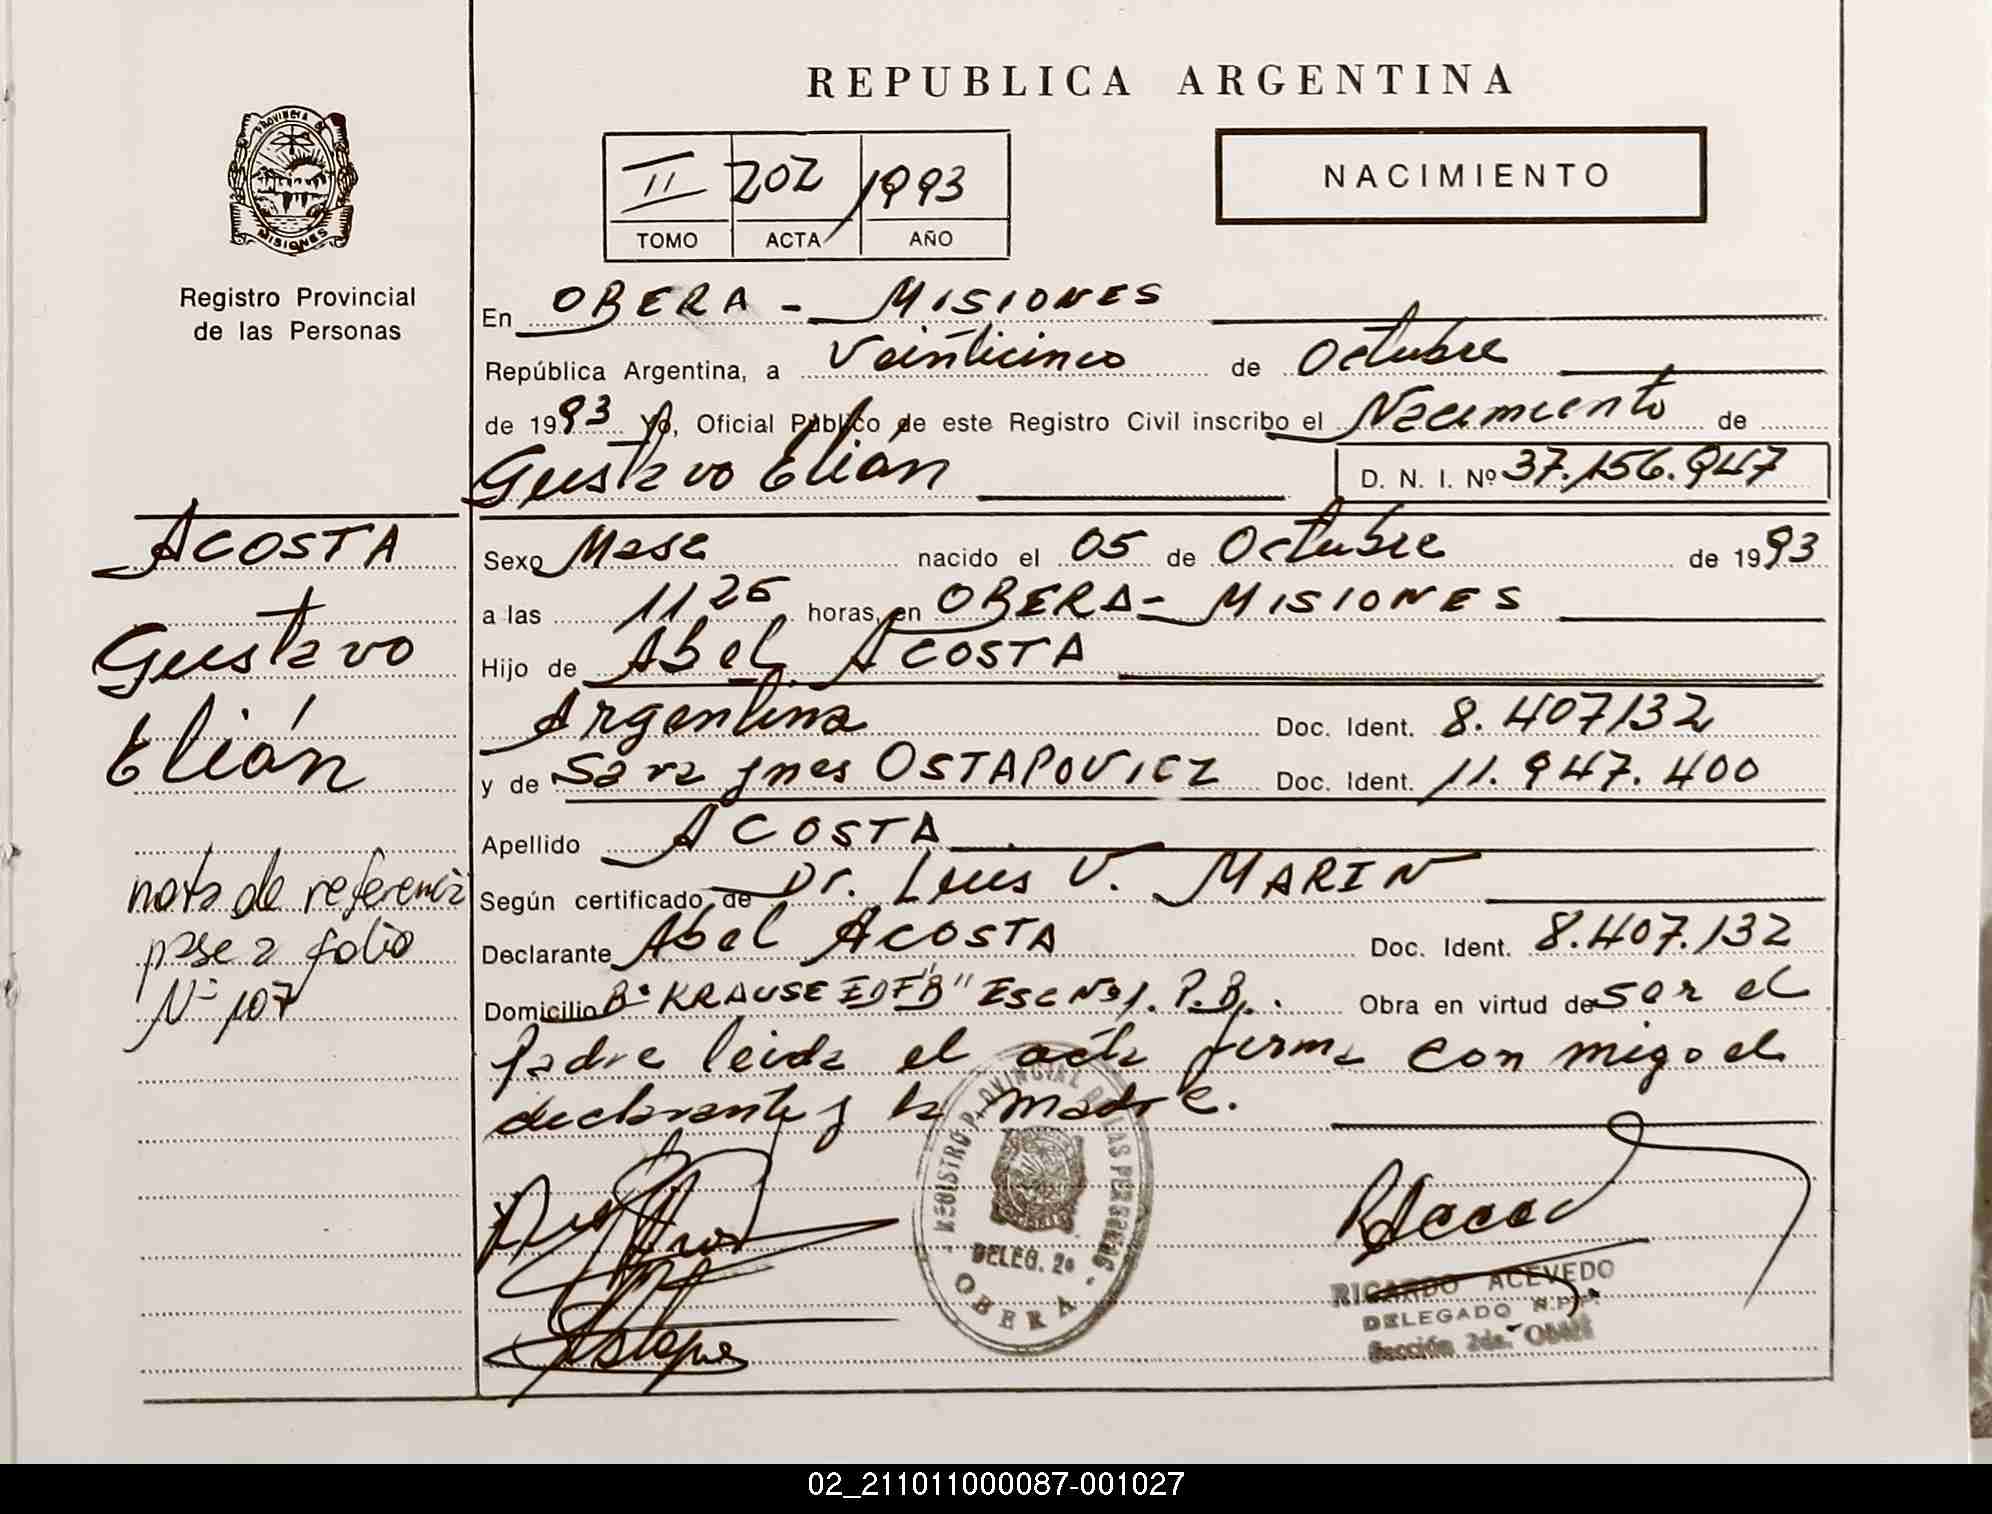 REPUBLICA ARGENTINA
II 202 / 1993
TOMO ACTA AÑO
NACIMIENTO
PROVINCIA DE
MISIONES
Registro Provincial
de las Personas
En OBERA - MISIONES
República Argentina, a Veinticinco de Octubre
de 1993 Yo, Oficial Público de este Registro Civil inscribo el Nacimiento de
Gustavo Elián D. N. I. Nº 37.156.947
Sexo Masc nacido el 05 de Octubre de 1993
a las 11 25 horas, en OBERA - MISIONES
Hijo de Abel ACOSTA
Argentina Doc. Ident. 8.407132
y de Sara Ynes OSTAPOVICZ Doc. Ident. 11.947.400
Apellido ACOSTA
Según certificado de Dr. Luis V. MARIN
Declarante Abel ACOSTA Doc. Ident. 8.407.132
Domicilio Bº KRAUSE EDF "B" Esc Nº 1. P.B. Obra en virtud de ser el
Padre leida el acta firma con migo el
declarante y la madre.
ACOSTA
Gustavo
Elián
nota de referencia
pase a folio
Nº 107
REGISTRO PROVINCIAL DE LAS PERSONAS
DELEG. 2ª
OBERA
RICARDO ACEVEDO
DELEGADO R.P.P.
Sección 2da.
02_211011000087-001027